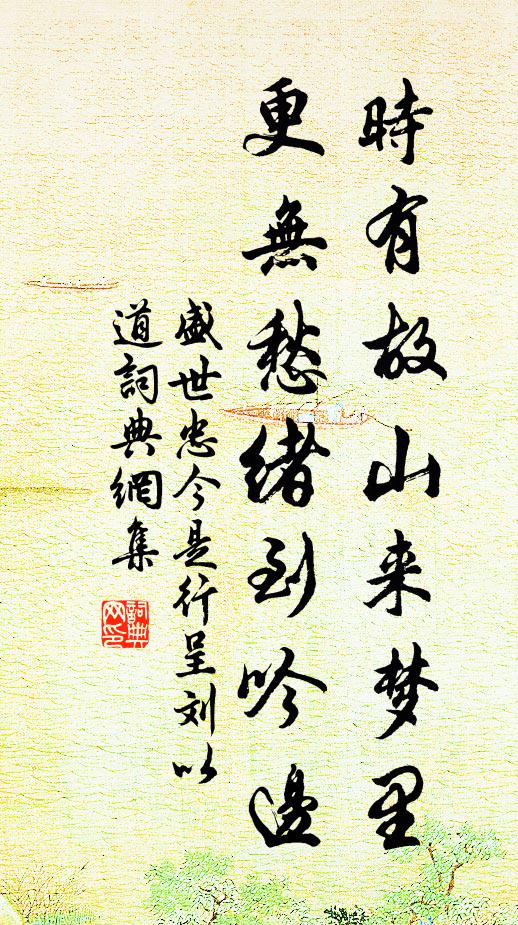 時有故山来梦里
更無愁緒到吟邊
盛世忠今是行呈刘以
道詞典網集
詞典网印